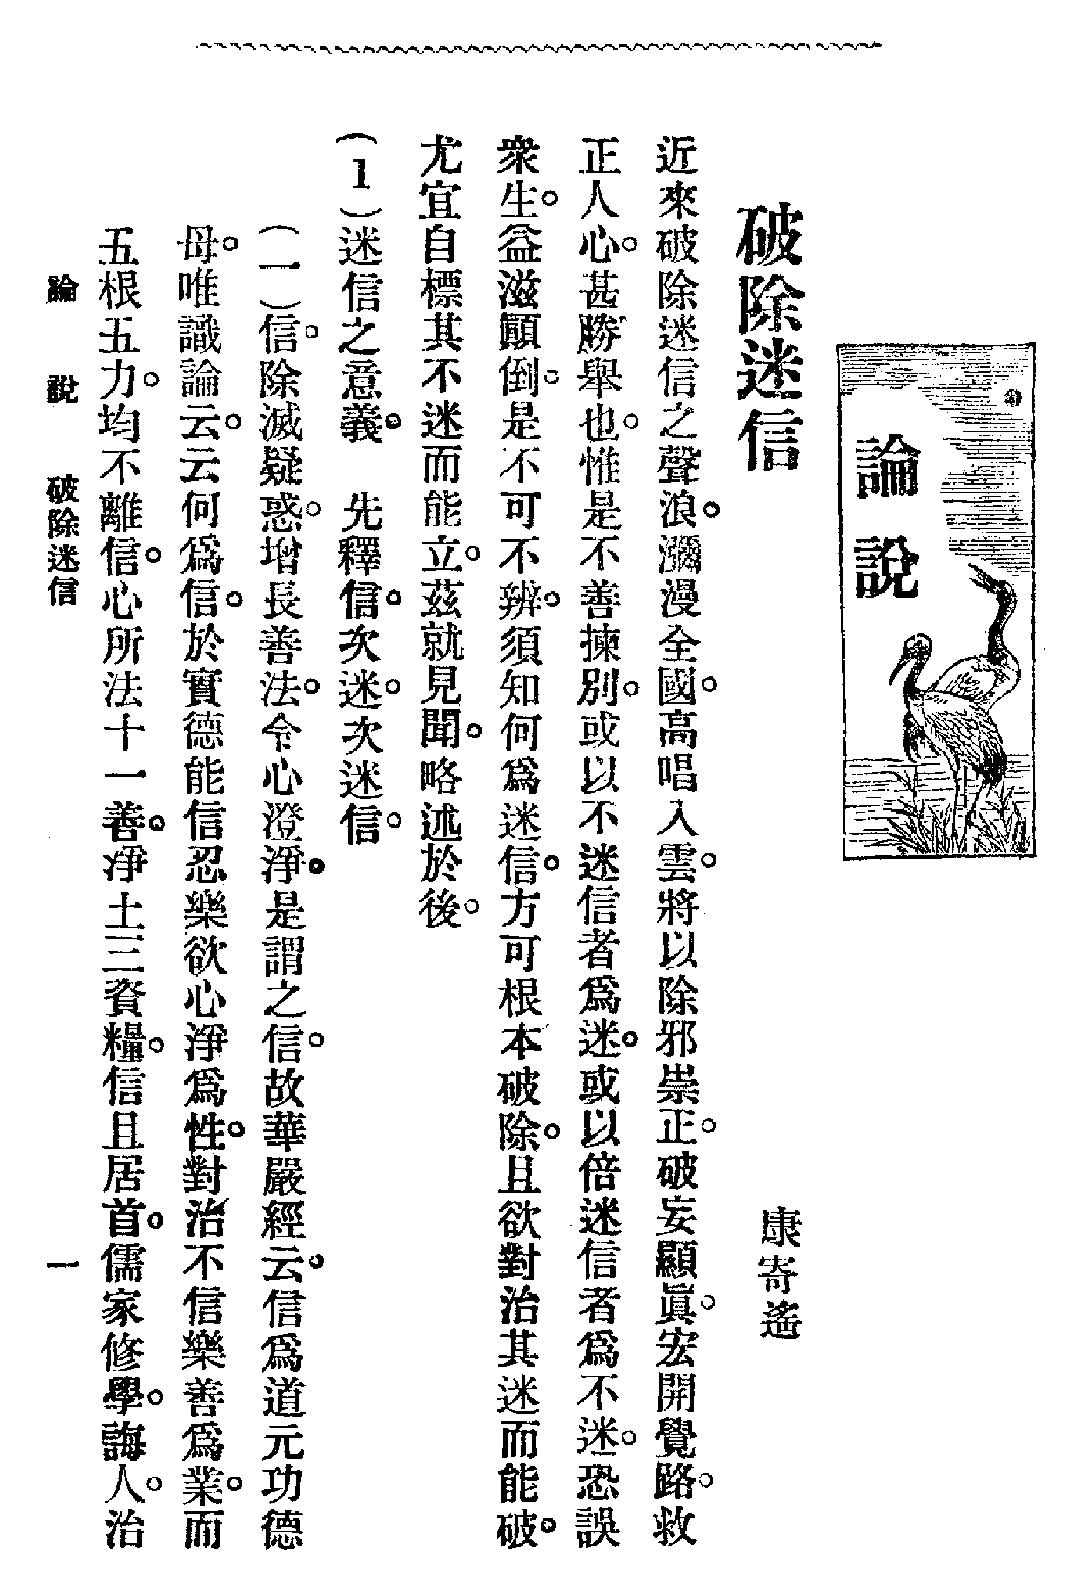 論說
破除迷信
康寄遙
近來破除迷信之聲浪。瀰漫全國。高唱入雲。將以除邪崇正。破妄顯眞。宏開覺路。救
正人心。甚勝舉也。惟是不善揀別。或以不迷信者爲迷。或以倍迷信者爲不迷。恐誤
衆生。益滋顚倒。是不可不辨。須知何爲迷信。方可根本破除。且欲對治其迷而能破。
尤宜自標其不迷而能立。茲就見聞。略述於後。
(1)迷信之意義。 先釋信。次迷。次迷信。
(一)信。除滅疑惑。增長善法。令心澄淨。是謂之信。故華嚴經云。信爲道元功德
母。唯識論云。云何爲信。於實德能信忍樂欲心淨爲性。對治不信樂善爲業。而
五根五力。均不離信。心所法十一善。淨土三資糧。信且居首。儒家修學。誨人。治
論 說 破除迷信
一